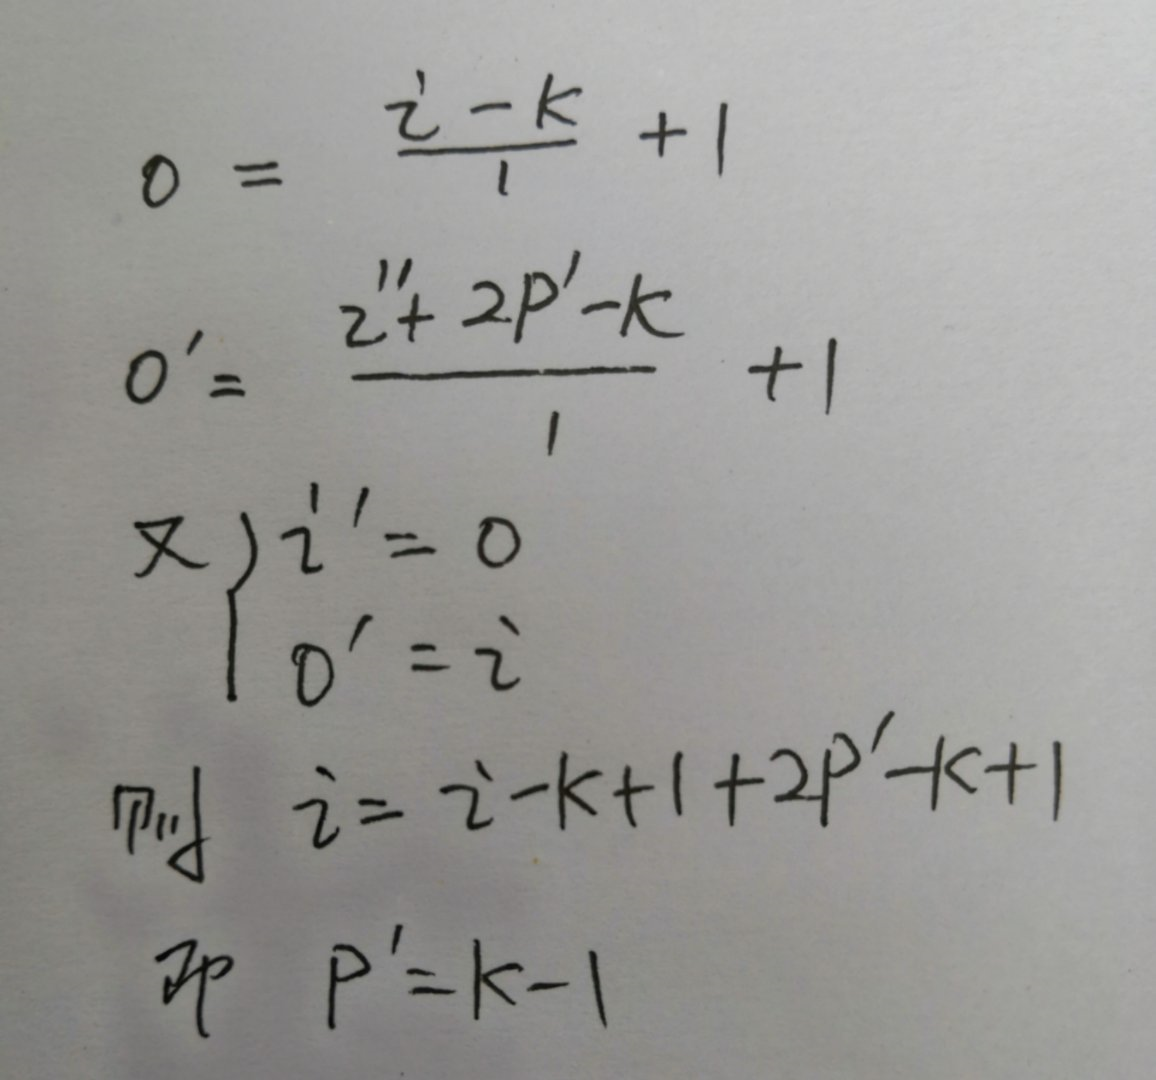 o = \frac{i-k}{1} + 1
o' = \frac{i'+2p'-k}{1} + 1
又 { i' = o
o' = i
则 i = i-k+1+2p'-k+1
即 p' = k-1